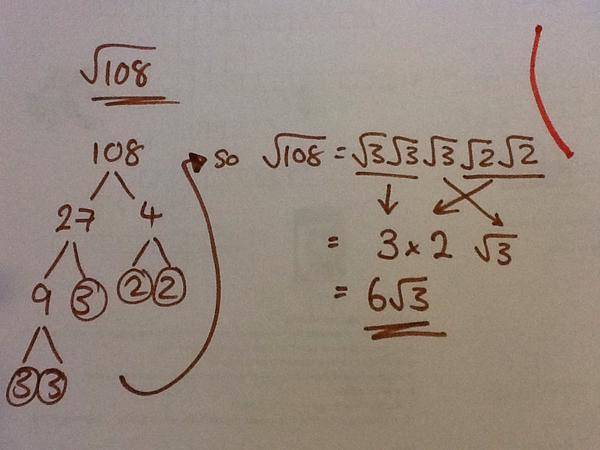 √108
108
27 4
9 3 2 2
3 3
so √108 = √3 √3 √3 √2 √2
= 3 × 2 √3
= 6√3